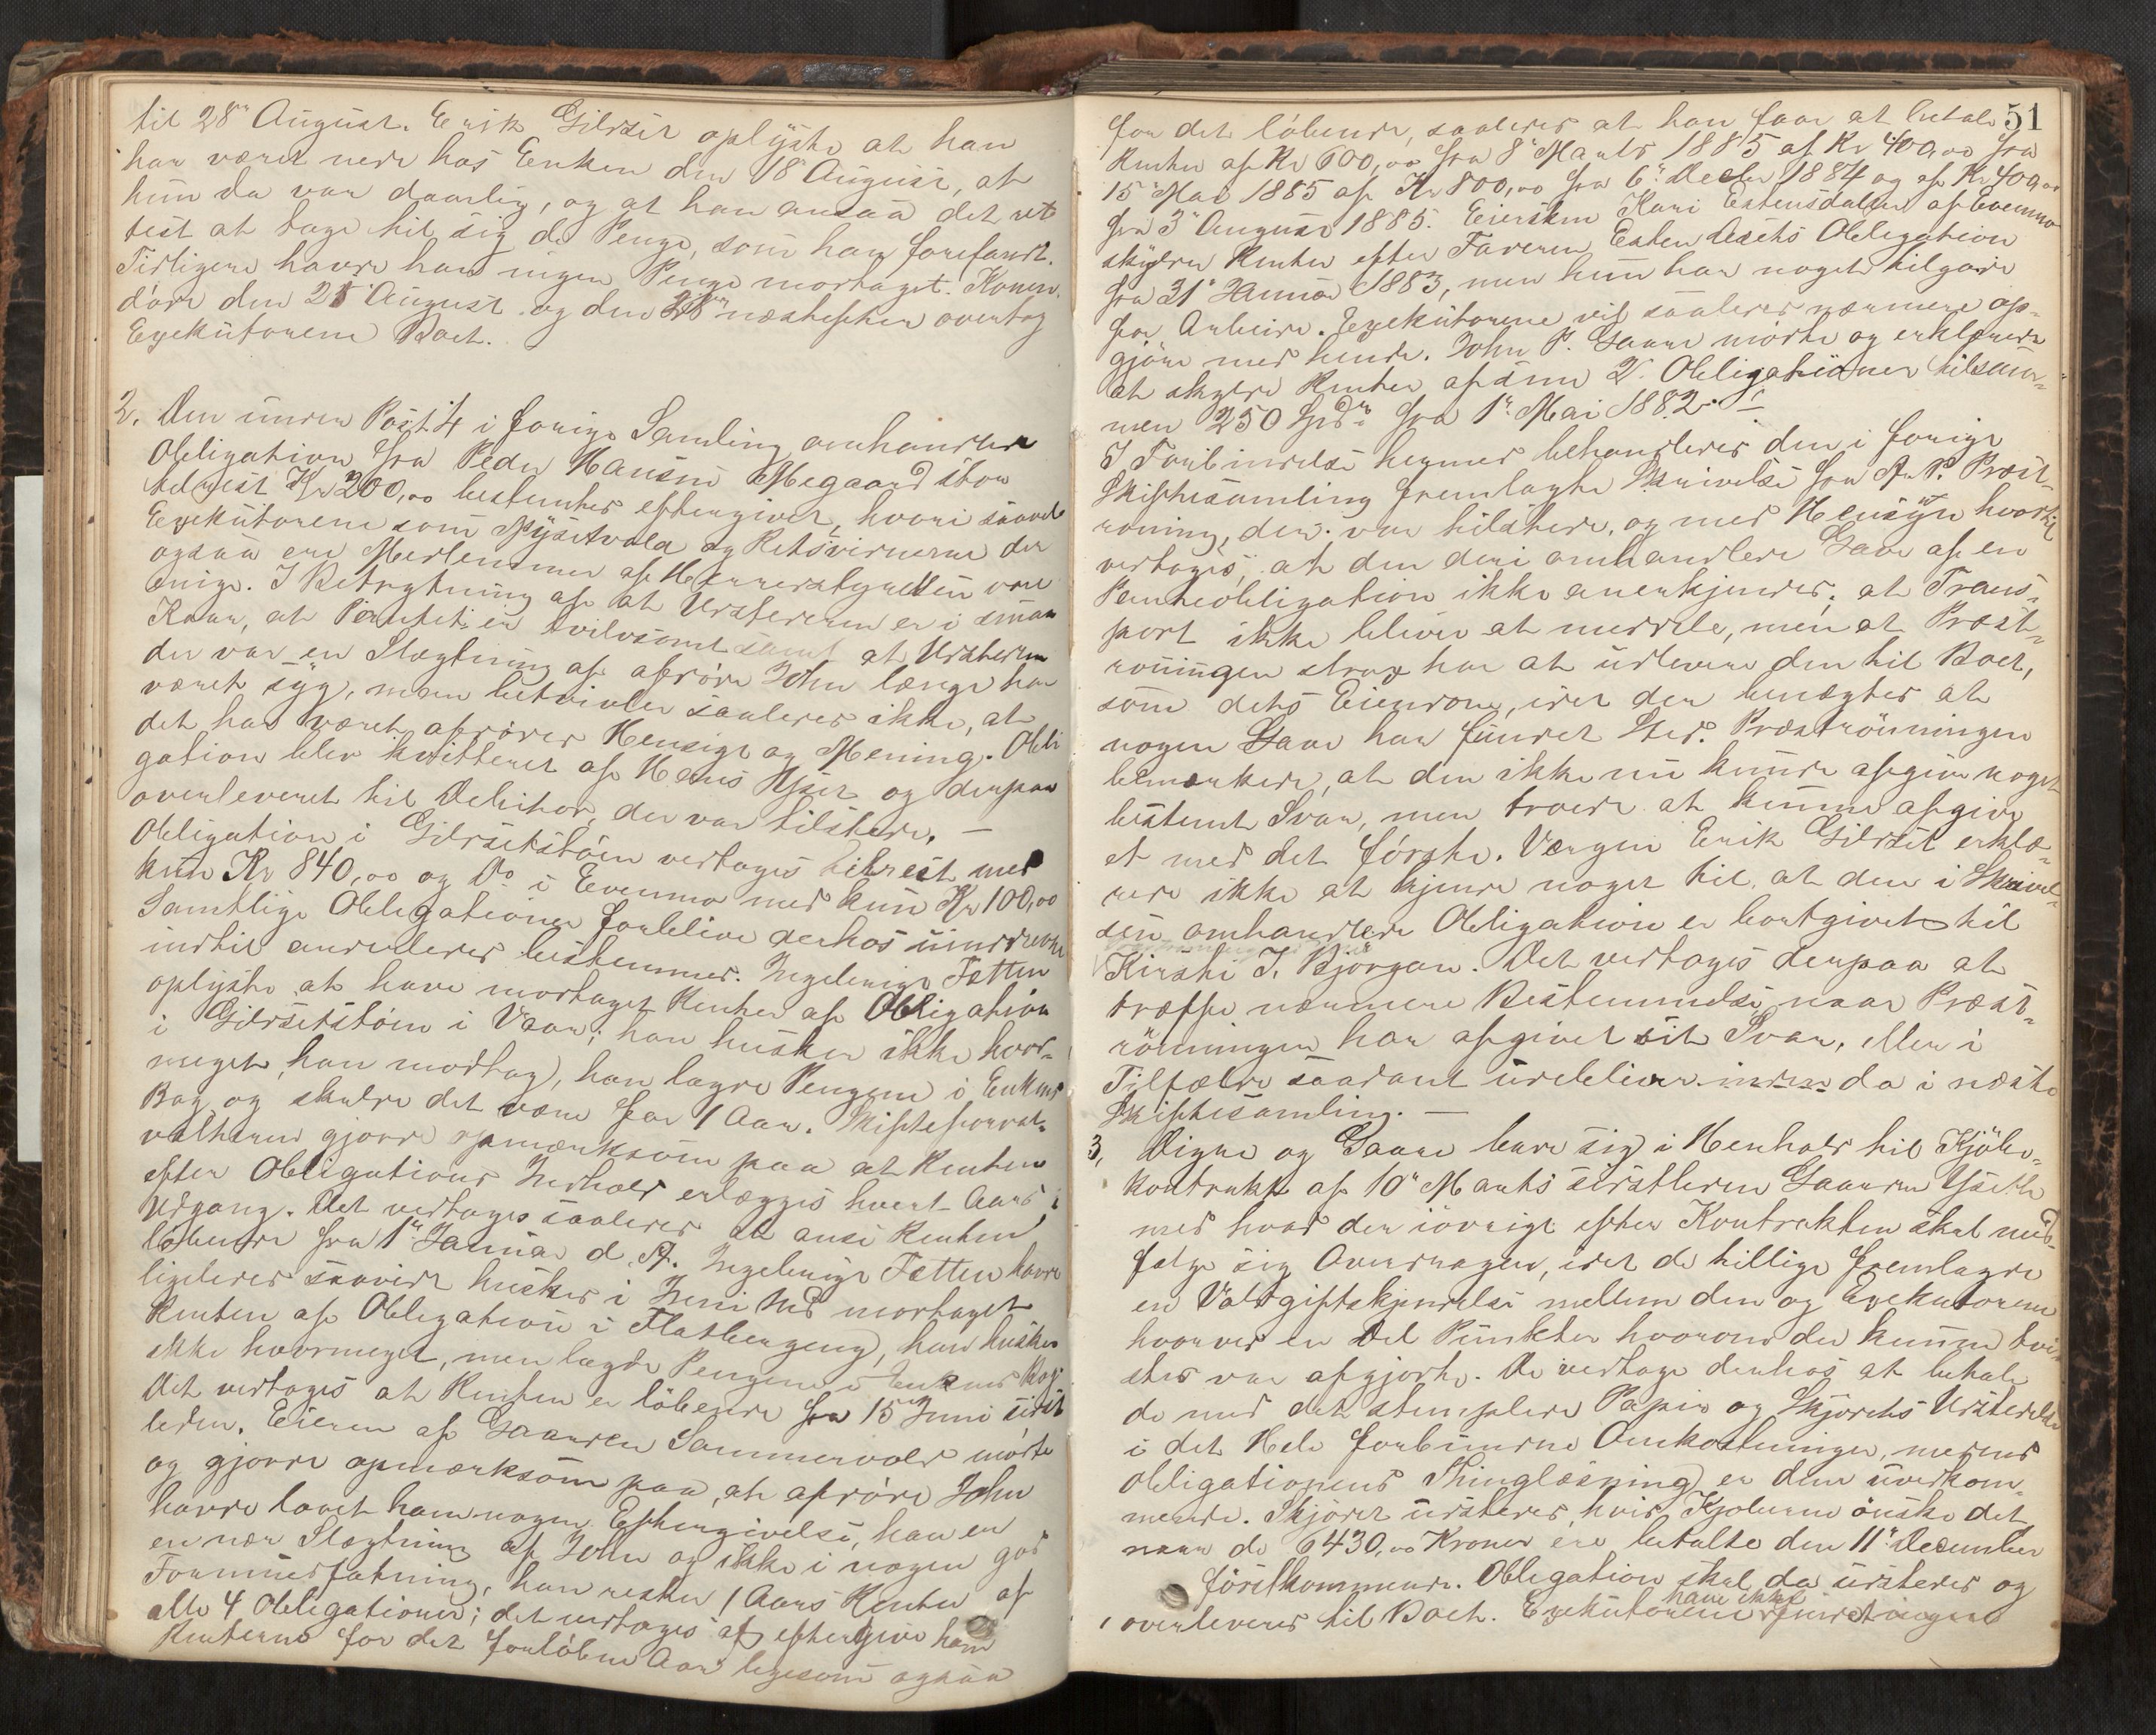 til 28de August. Erik Gilset oplyste at han
har været nede hos Enken den 18 August, at
hun da var daarlig, og at han ansaa det ret
test at tage til sig de Penge, som han forefandt.
Tidligere havde han ingen Penge modtaget. Konen
döde den 21 August og den 28de næstefter overtog
Exekutorerne Boet.
2. Den under Post 4 i forrige Samling omhandlede
Obligation fra Peder Hansen Megaard stor
tilrest Kr 200,00 bestemtes eftergivet, hvori saavel
Exekutorerne som Mysetvold og Retsvidnerne der
ogsaa ere Medlemmer af Herredsstyrelsen vare
enige. I Betragtning af at Udstederen er i smaa
Kaar, at Pantet er tvilsomt samt at Udstederen
der var en Slægtning af afdöde John længe har
været syg, man betvivler saaledes ikke, at
det har været afdödes Hensigt og Mening. Obli
gation blev kvitteret af Hans Kjset og derpaa
overleveret til Debitor, der var tilstede. —
Obligation i Gilsetstöen vedtages tilrest med
kun Kr 840,00 og Do i Evenmo med kun Kr 100,00
Samtlige Obligationer forblive derhos uinddrevne
indtil anderledes bestemmes. Ingebrigt Tetten
oplyste at have modtaget Renter af Obligation
i Gilsetstöen i Vaar; han husker ikke hvor-
meget han modtag, han lagde Pengene i Enkens
Bog og skulde det være for 1 Aar. Skifteforval-
valteren gjorde opmærksom paa at Renten
efter Obligations Indhold erlægges hvert Aars
Udgang. Det vedtages saaledes at anse Renten
löbende fra 1de Januar d. A. Ingebrigt Tetten havde
ligeledes saavidt huskes i Juni Md modtaget
Renten af Obligation i Flatbergeng, han husker
ikke hvormeget, men lagde Pengene i Enkens Bog
Det vedtages at Renten er löbende fra 15 Juni sidst
leden. Eieren af Gaarden Sammervold mödte
og gjorde opmærksom paa, at afdöde John
havde lovet ham nogen Eftergivelse, han er
en nær Slægtning af John og ikke i nogen god
Formuesfatning, han rester 1 Aars Renter af
alle 4 Obligationer; det vedtages at eftergive ham
Renterne for det forlöbne Aar ligesom ogsaa
51
for det löbende, saaledes at han faar at betale
Renter af Kr 600,00 fra 8de Marts 1885 af Kr 400,00 fra
15de Mai 1885 af Kr 800,00 fra 6te Decbr 1884 og af Kr 400,00
fra 3de August 1885. Eiersken Kari Estensdatter af Evenmo
skylder Renter efter Faderen Esten Aaets Obligation
fra 31te Januar 1883, men hun har noget tilgode
for Arbeide. Exekutorerne vil saaledes nærmere op-
gjöre med hende. John P. Gaare mödte og erklærede
at skylde Renter af sine 2 Obligationer tilsam-
men 250 Spdr fra 1de Mai 1882. —
I Forbindelse hermed behandledes den i forrige
Skiftesamling fremlagte Skrivelse fra A. P. Præst-
röning, der var tilstede, og med Hensyn hvortil
vedtages, at den deri omhandlede Gave af en
Panteobligation ikke anerkjendes, at Trans-
port ikke bliver at meddele, men at Præst-
rönningen strax har at udlevere den til Boet,
som dets Eiendom, idet der benægtes at
nogen Gave har fundet Sted. Præströnningen
bemærkede, at den ikke nu kunde afgive noget
bestemt Svar, men troede at kunne afgive
et med det förste. Værgen Erik Gilset erklæ-
rede ikke at kjende noget til at den i Skrivel-
sen omhandlede Obligation er bortgivet til
Kirsti J. Björgan. Det vedtages derpaa at
træffe nærmere Bestemmelse, naar Præst-
rönningen har afgivet sit Svar, eller i
Tilfælde saadant udebliver da i næste
Skiftesamling. —
3, Digre og Gaare bare sig i Henhold til Kjöbe-
kontrakt af 10de Marts sidstleden Gaarden
med hvad der iövrigt efter Kontrakten skal med-
fölge sig Overdragen, idet de tillige fremlagde
en Voldgiftskjendelse mellem dem og Exekutorerne
hvorved en Del Punkter hvorom der kunne tvi-
stes var afgjorte. De vedtage derhos at betale
de med det stemplede Papir og Skjödets Udstedelse
i det Hele forbundne Omkostninger, medens
Obligationens Thinglæsning er dem uvedkom-
mende. Skjödet udstedes, hvis Kjöberne önske det
naar de 6430,00 Kroner ere betalte den 11te December
förstkommende. Obligation skal da udstedes og
overleveres til Boet. Exekutorerne have ikke fundet nogen